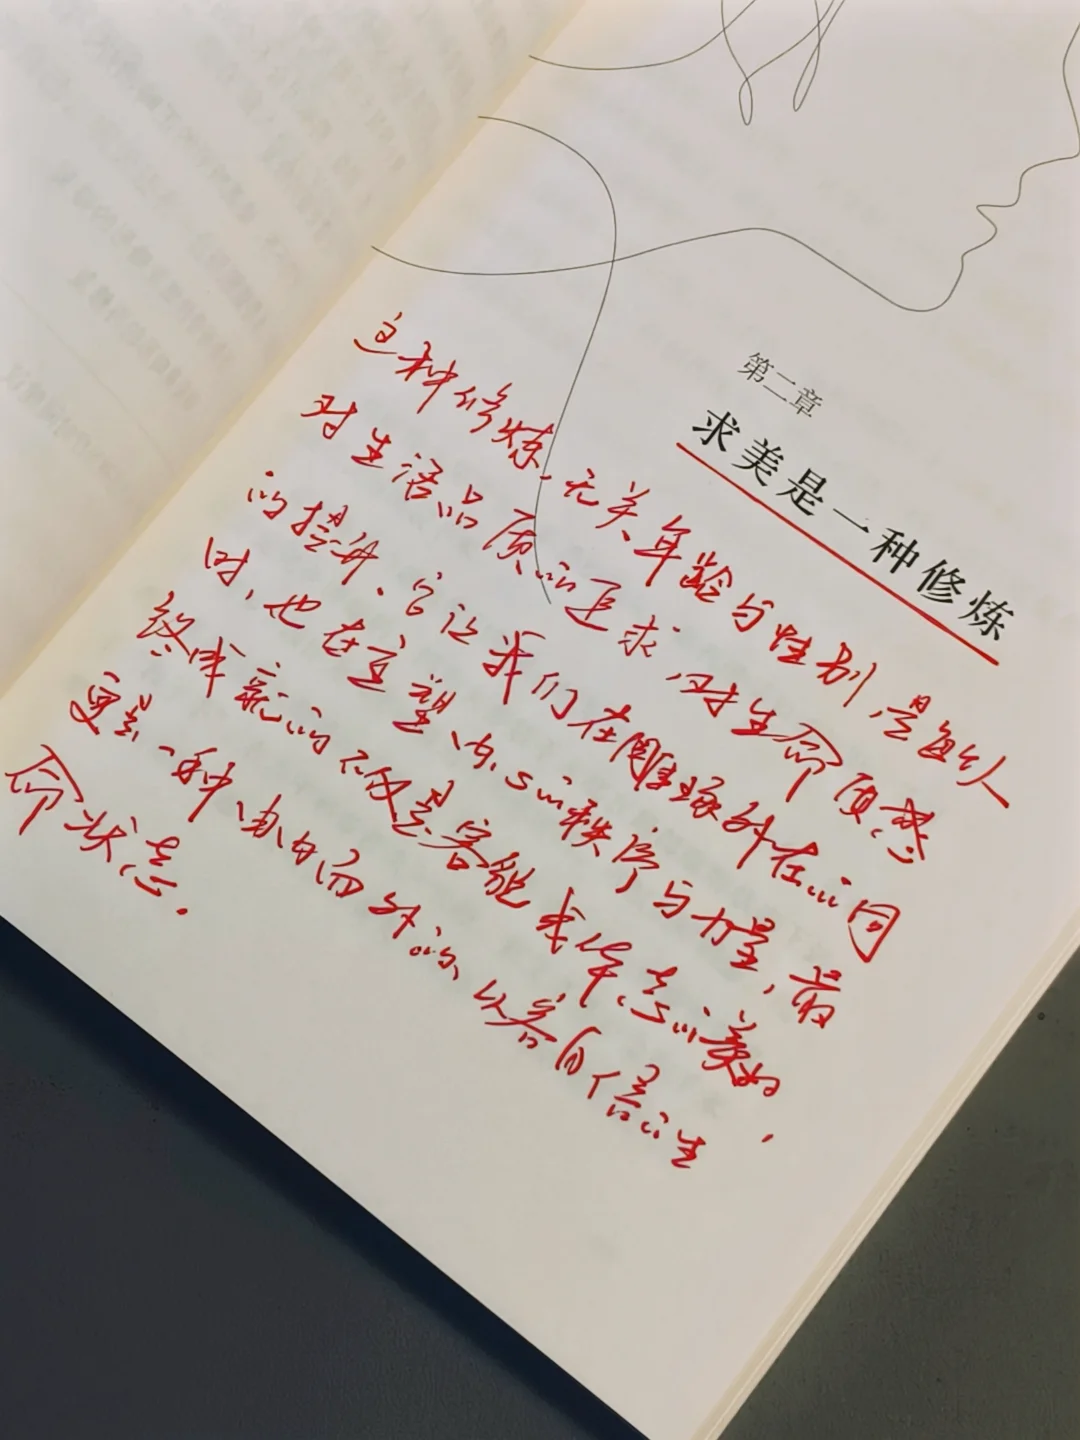 第二章
求美是一种修炼
这种修炼，无关年龄与性别，是每个人
对生活品质的追求，对生命质感
的提升。它让我们在雕琢外在的同
时，也在重塑内心的秩序与力量，最
终成就的不仅是容貌或体态的美好，
更是一种由内而外的、从容自信的生
命状态。